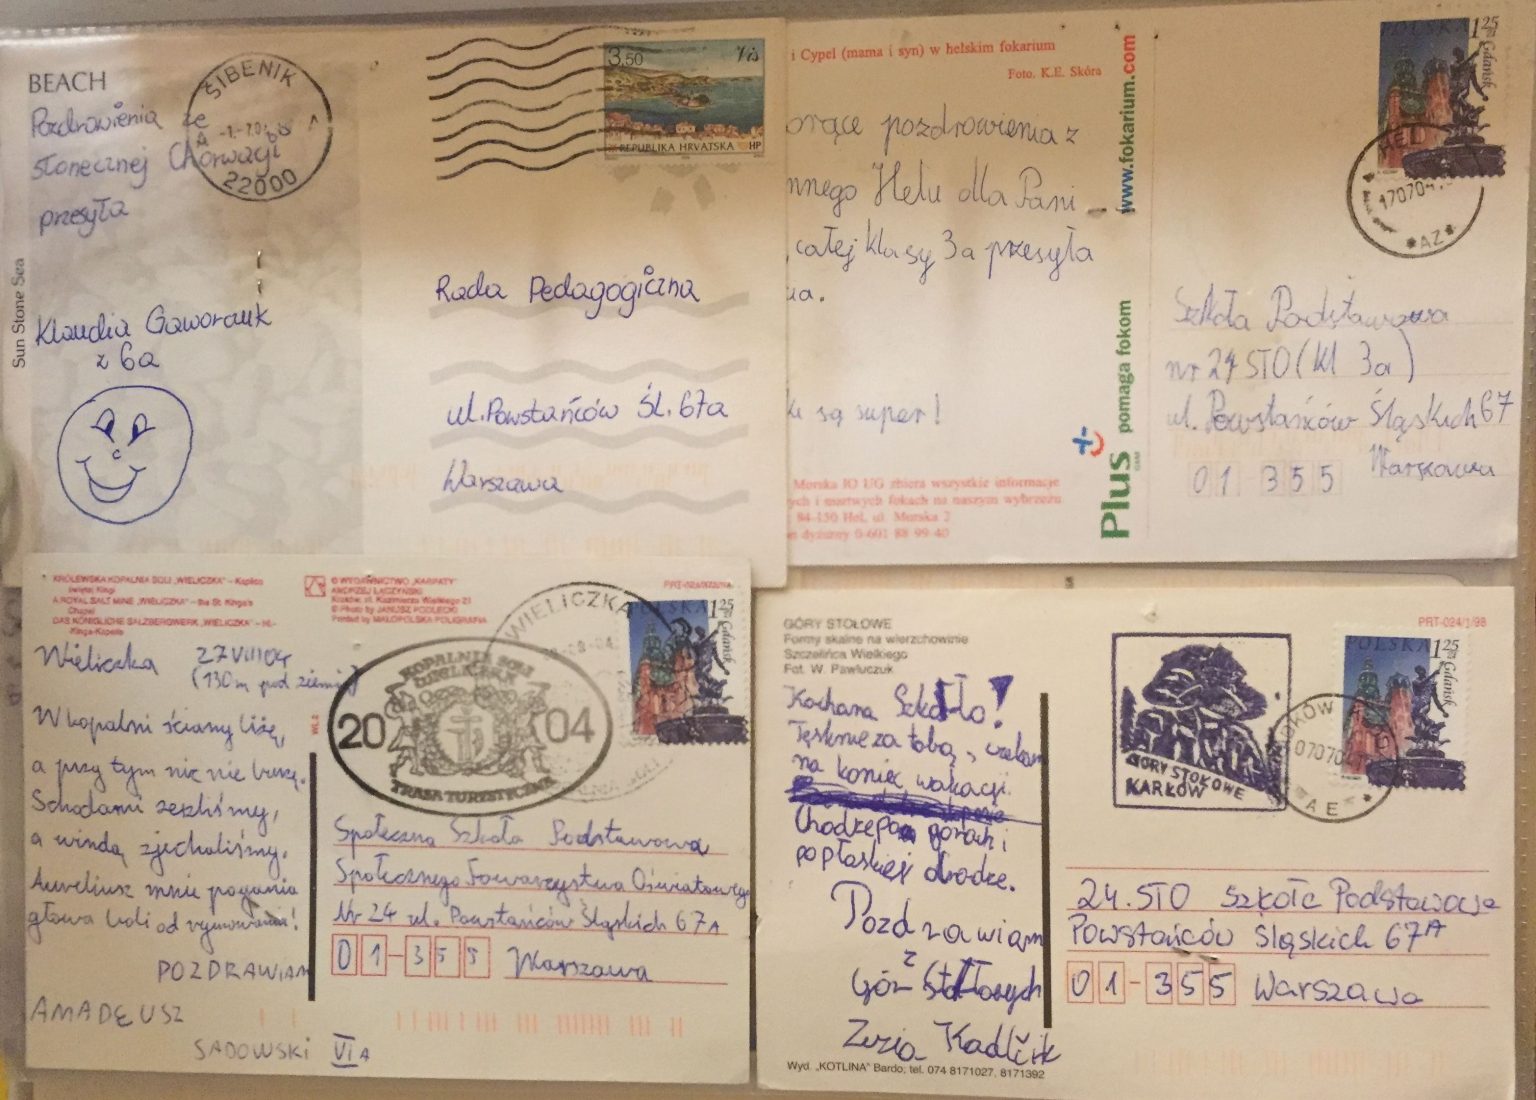 BEACH
Pozdrowienia ze
słonecznej Chorwacji
przesyła
Klaudia Gaworczuk
z 6a
Sun Stone Sea
ŠIBENIK
22000
3,50 Vis
REPUBLIKA HRVATSKA HP
Rada Pedagogiczna
ul. Powstańców Śl. 67a
Warszawa
i Cypel (mama i syn) w helskim fokarium
Foto. K.E. Skóra
orące pozdrowienia z
nnego Helu dla Pani
całej klasy 3a przesyła
ia.
są super!
Morska IO UG zbiera wszystkie informacje
ych i martwych fokach na naszym wybrzeżu
84-150 Hel, ul. Morska 2
dyżurny 0-601 88 99 40
www.fokarium.com
Plus pomaga fokom
POLSKA 1,25
Gdańsk
HEL
170704
*AZ*
Szkoła Podstawowa
nr 24 STO (kl 3a)
ul. Powstańców Śląskich 67
01 355 Warszawa
KRÓLEWSKA KOPALNIA SOLI „WIELICZKA” – Kaplica
świętej Kingi
A ROYAL SALT MINE „WIELICZKA” – the St. Kinga's
Chapel
DAS KÖNIGLICHE SALZBERGWERK „WIELICZKA” – Hl.-
Kinga-Kapelle
© WYDAWNICTWO „KARPATY”
ANDRZEJ ŁĄCZYŃSKI
Kraków, ul. Kazimierza Wielkiego 21
© Photo by JANUSZ PODLECKI
Printed by MAŁOPOLSKA POLIGRAFIA
Wieliczka 27 VIII 04r
(130m pod ziemią)
W kopalni ściany liżę,
a przy tym nic nie burzę.
Schodami zeszliśmy,
a windą zjechaliśmy.
Aureliusz mnie pogania
głowa boli od rymowania!
POZDRAWIAM
AMADEUSZ
SADOWSKI VI A
WIELICZKA
KOPALNIA SOLI
WIELICZKA
20 04
TRASA TURYSTYCZNA
POLSKA 1,25
Gdańsk
Społeczna Szkoła Podstawowa
Społecznego Towarzystwa Oświatowego
Nr 24 ul. Powstańców Śląskich 67A
01-355 Warszawa
GÓRY STOŁOWE
Formy skalne na wierzchowinie
Szczelińca Wielkiego
Fot. W. Pawluczuk
PRT-024/1/98
Kochana Szkoło!
Tęsknie za tobą, czekam
na koniec wakacji.
Chodzę po górach i
po płaskiej drodze.
Pozdrawiam
z
Gór Stołowych
Zuzia Kadlčik
Wyd. „KOTLINA” Bardo; tel. 074 8171027, 8171392
GÓRY STOŁOWE
KARŁÓW
070704
AE
POLSKA 1,25
Gdańsk
24. STO Szkołe Podstawowe
Powstańców Śląskich 67A
01-355 Warszawa